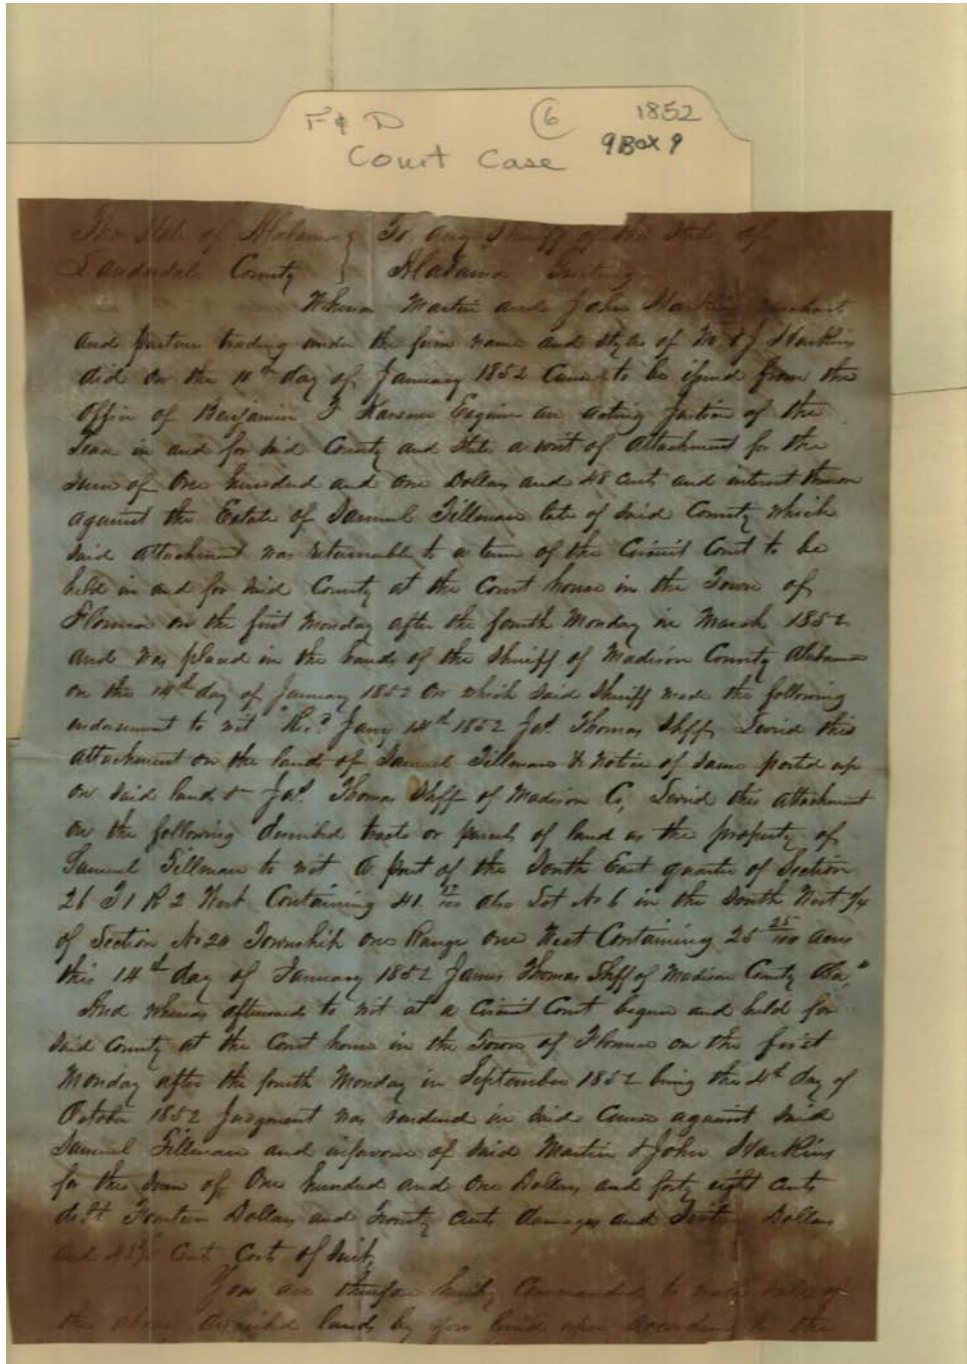 F & D
6
1852
9 Box 9
Court Case
The State of Alabama } To any Sheriff of the State of
Lauderdale County } Alabama Greeting
Whereas Martin and John Harkins merchants
and partners trading under the firm name and style of M. & J Harkins
did on the 10th day of January 1852 Cause to be issued from the
Office of Benjamin F Karsner Esquire an acting Justice of the
Peace in and for said County and State a writ of attachment for the
sum of One hundred and one Dollars and 48 cents and interest thereon
against the Estate of Samuel Tillman late of said County which
said attachment was returnable to a term of the Circuit Court to be
held in and for said County at the Court house in the Town of
Florence on the first Monday after the fourth Monday in March 1852
and was placed in the hands of the Sheriff of Madison County Alabama
on the 14th day of January 1852 on which said Sheriff made the following
endorsement to wit "Recd Jany 14th 1852 Jas Thomas Shff, Levied this
attachment on the lands of Samuel Tillman & Notice of same posted up
on said land & Jas Thomas Shff of Madison Co, Levied this attachment
on the following described tracts or parcels of land as the property of
Samuel Tillman to wit a part of the South East quarter of Section
26 T1 R2 West Containing 41 17/100 also Lot No 6 in the South West 1/4
of Section No 20 Township one Range one West Containing 25 25/100 acres
this 14th day of January 1852 James Thomas Shff of Madison County Ala,"
And whereas afterwards to wit at a Circuit Court begun and held for
said County at the Court house in the Town of Florence on the first
Monday after the fourth Monday in September 1852 being the 4th day of
October 1852 Judgment was rendered in said Cause against said
Samuel Tillman and infavour of said Martin & John Harkins
for the sum of One hundred and one Dollars and forty eight cents
debt Fourteen Dollars and Twenty cents damages and Dollars
and Cent Cost of suit,
You are therefore hereby Commanded to make sales of
the above described lands by you levied upon according to the